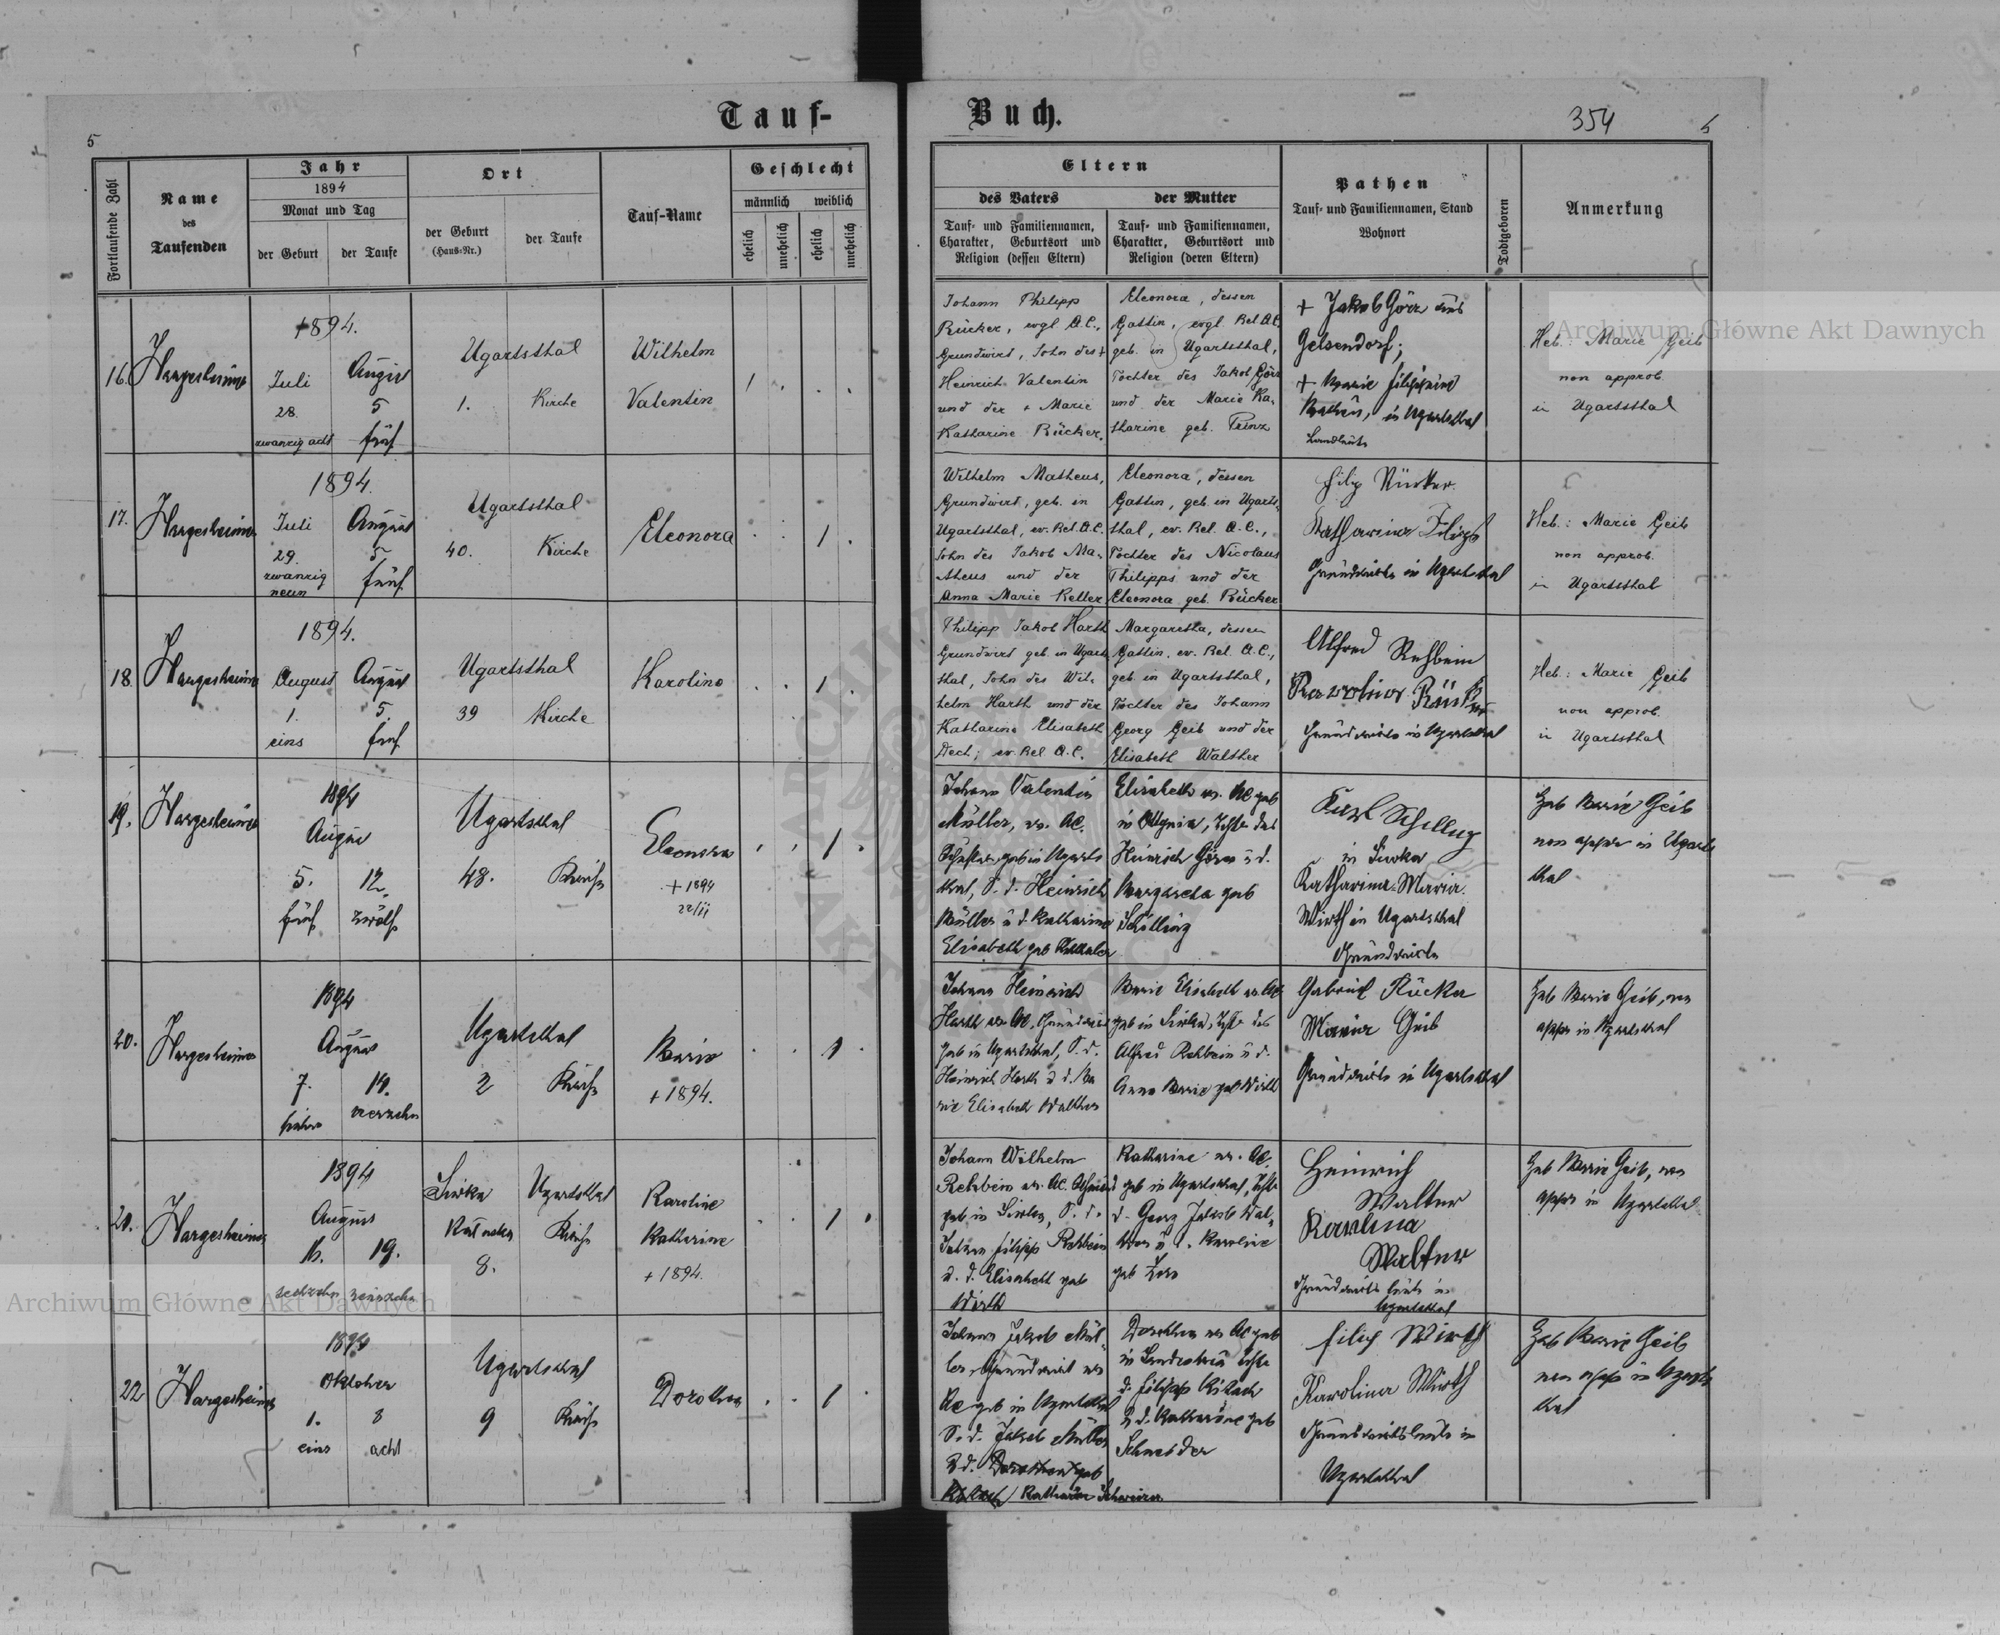 Tauf-
Buch.
354
5
Fortlaufende Zahl
Name
des
Taufenden
Jahr
1894
Monat und Tag
der Geburt
der Taufe
Ort
der Geburt
(Haus-Nr.)
der Taufe
Tauf-Name
Geschlecht
männlich
weiblich
ehelich
unehelich
ehelich
unehelich
Eltern
des Vaters
Tauf- und Familiennamen,
Charakter, Geburtsort und
Religion (dessen Eltern)
der Mutter
Tauf- und Familiennamen,
Charakter, Geburtsort und
Religion (deren Eltern)
Pathen
Tauf- und Familiennamen, Stand
Wohnort
Todtgeboren
Anmerkung
16.
Hargesheimer
1894.
Juli
28.
zwanzig acht
August
5
fünf
Ugartsthal
1.
Kirche
Wilhelm
Valentin
1
Johann Philipp
Rücker, evgl. A.C.,
Grundwirt, Sohn des +
Heinrich Valentin
und der + Marie
Katharine Rücker.
Eleonora, dessen
Gattin, evgl. Rel. A.C.
geb. in Ugartsthal,
Tochter des Jakob Görz
und der Marie Ka-
tharine geb. Prinz
+ Jakob Görz aus
Gelsendorf;
in Ugartsthal
Heb.: Marie Geib
non approb.
in Ugartsthal
17.
Hargesheimer
1894.
Juli
29.
zwanzig
neun
August
5
fünf
Ugartsthal
40.
Kirche
Eleonora
1
Wilhelm Matheus,
Grundwirt, geb. in
Ugartsthal, ev. Rel. A.C.
Sohn des Jakob Ma-
theus und der
Anna Marie Keller
Eleonora, dessen
Gattin, geb. in Ugarts-
thal, ev. Rel. A.C.,
Tochter des Nicolaus
Philipps und der
Eleonora geb. Rücker
Filip Rücker
Katharina Filips
Grundwirte in Ugartsthal
Heb.: Marie Geib
non approb.
in Ugartsthal
18.
Hargesheimer
1894.
August
1.
eins
August
5.
fünf
Ugartsthal
39
Kirche
Karoline
1
Philipp Jakob Harth
Grundwirt geb. in Ugarts-
thal, Sohn des Wil-
helm Harth und der
Katharina Elisabeth
Dech; ev. Rel. A.C.
Margaretha, dessen
Gattin, ev. Rel. A.C.,
geb. in Ugartsthal,
Tochter des Johann
Georg Geib und der
Elisabeth Walther
Alfred Rehbein
Karolina Rücker
Grundwirte in Ugartsthal
Heb.: Marie Geib
non approb.
in Ugartsthal
19.
Hargesheimer
1894
August
5.
fünf
12.
zwölf
Ugartsthal
48.
Kirche
Eleonora
+ 1894
22/11
1
Johann Valentin
Müller, ev. AC.
geb in Ugarts
thal, S. d. Heinrich
Müller u d. Katharina
Elisabeth geb
Elisabeth ev. AC geb
in Ottynia, Tochter des
Heinrich Görz u d.
Margareta geb
Schilling
Karl Schilling
in Siwka
Katharina Maria
Wirth in Ugartsthal
Grundwirte
Heb Marie Geib
non appr in Ugarts
thal
20.
Hargesheimer
1894
August
7.
sieben
14.
vierzehn
Ugartsthal
2
Kirche
Marie
+ 1894.
1
Johann Heinrich
Harth ev. AC. Grundwirt
geb in Ugartsthal, S. d.
Heinrich Harth u d. Ma
rie Elisabeth Walther
Marie Elisabeth ev. AC
geb in Siwka, Tochter des
Alfred Rehbein u d.
Anna Marie geb Wirth
Gabriel Rücker
Maria Geib
Grundwirte in Ugartsthal
Heb Marie Geib, non
appr in Ugartsthal
21.
Hargesheimer
1894
August
16.
sechzehn
19.
neunzehn
Siwka
8.
Ugartsthal
Kirche
Karoline
Katharine
+ 1894.
1
Johann Wilhelm
Rehbein ev. AC.
geb in Siwka, S. d.
Johann Filipp Rehbein
u. d. Elisabeth geb
Wirth
Katharine ev. AC.
geb in Ugartsthal, Tochter
d. Georg Jakob Wal-
ther u d. Karoline
geb
Heinrich
Walter
Karolina
Walter
Grundwirts leute in
Ugartsthal
Heb Marie Geib, non
appr in Ugartsthal
22
Hargesheimer
1894
Oktober
1.
eins
8
acht
Ugartsthal
9
Kirche
Dorothea
1
Johann Jakob Mül-
ler, Grundwirt ev
AC geb in Ugartsthal
S. d. Jakob Müller
u d. Dorothea geb
Katharina
Dorothea ev AC geb
in Landestreu Tochter
d. Filipp
u d. Katharine geb
Schneider
Filip Wirth
Karolina Wirth
Grundwirtsleute in
Ugartsthal
Heb Marie Geib
non appr in Ugarts
thal
Archiwum Główne Akt Dawnych
Archiwum Główne Akt Dawnych